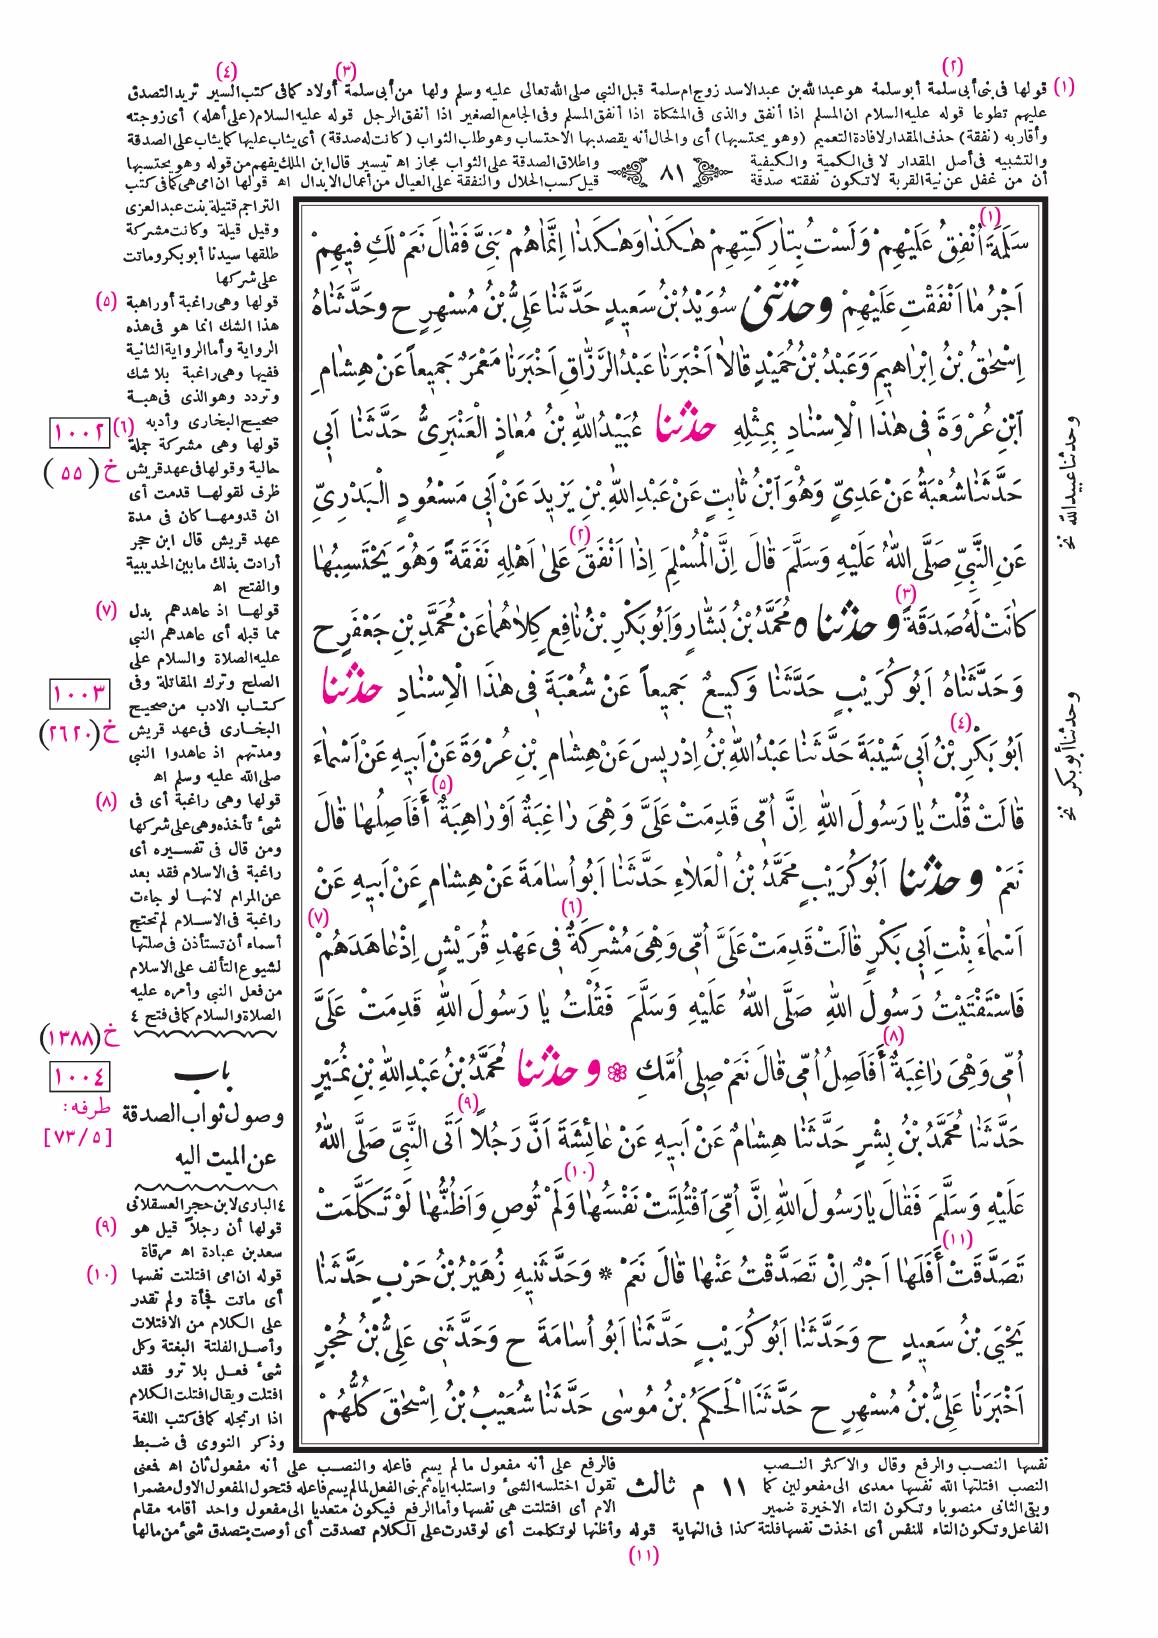 (٢) (٣) (٤)
(١) قولها فى بنى أبى سلمة أبو سلمة هو عبدالله بن عبدالاسد زوج ام سلمة قبل النبى صلى الله تعالى عليه وسلم ولها من أبى سلمة أولاد كما فى كتب السير تريد التصدق
عليهم تطوعا قوله عليه السلام ان المسلم اذا أنفق والذى فى المشكاة اذا أنفق المسلم وفى الجامع الصغير اذا أنفق الرجل قوله عليه السلام (على أهله) أى زوجته
وأقاربه (نفقة) حذف المقدار لافادة التعميم (وهو يحتسبها) أى والحال أنه يقصد بها الاحتساب وهو طلب الثواب (كانت له صدقة) أى يثاب عليها كما يثاب على الصدقة
والتشبيه فى أصل المقدار لا فى الكمية والكيفية
أن من غفل عن نية القربة لا تكون نفقته صدقة
٨١
واطلاق الصدقة على الثواب مجاز اه تيسير قال ابن الملك يفهم من قوله وهو يحتسبها
قيل كسب الحلال والنفقة على العيال من أعمال الابدال اه قولها ان امى هى كما فى كتب
سَلَمَةَ اُنْفِقُ عَلَيْهِمْ وَلَسْتُ بِتَارِكَتِهِمْ هٰكَذَا وَهٰكَذَا اِنَّمَا هُمْ بَنِىَّ فَقَالَ نَعَمْ لَكِ فِيهِمْ
اَجْرُ مَا اَنْفَقْتِ عَلَيْهِمْ وحدثنى سُوَيْدُ بْنُ سَعِيدٍ حَدَّثَنَا عَلِىُّ بْنُ مُسْهِرٍ ح وحَدَّثَنَاهُ
اِسْحٰقُ بْنُ اِبْرَاهِيمَ وَعَبْدُ بْنُ حُمَيْدٍ قَالَا اَخْبَرَنَا عَبْدُ الرَّزَّاقِ اَخْبَرَنَا مَعْمَرٌ جَمِيعاً عَنْ هِشَامِ
ابْنِ عُرْوَةَ فِى هٰذَا الْاِسْنَادِ بِمِثْلِهِ حدثنا عُبَيْدُ اللهِ بْنُ مُعَاذٍ الْعَنْبَرِىُّ حَدَّثَنَا اَبِى
حَدَّثَنَا شُعْبَةُ عَنْ عَدِىٍّ وَهُوَ ابْنُ ثَابِتٍ عَنْ عَبْدِ اللهِ بْنِ يَزِيدَ عَنْ اَبِى مَسْعُودٍ الْبَدْرِىِّ
عَنِ النَّبِىِّ صَلَّى اللهُ عَلَيْهِ وَسَلَّمَ قَالَ اِنَّ الْمُسْلِمَ اِذَا اَنْفَقَ عَلىٰ اَهْلِهِ نَفَقَةً وَهُوَ يَحْتَسِبُهَا
كَانَتْ لَهُ صَدَقَةً وحدثناه مُحَمَّدُ بْنُ بَشَّارٍ وَاَبُو بَكْرِ بْنُ نَافِعٍ كِلَاهُمَا عَنْ مُحَمَّدِ بْنِ جَعْفَرٍ ح
وَحَدَّثَنَاهُ اَبُو كُرَيْبٍ حَدَّثَنَا وَكِيعٌ جَمِيعاً عَنْ شُعْبَةَ فِى هٰذَا الْاِسْنَادِ حدثنا
اَبُو بَكْرِ بْنُ اَبِى شَيْبَةَ حَدَّثَنَا عَبْدُ اللهِ بْنُ اِدْرِيسَ عَنْ هِشَامِ بْنِ عُرْوَةَ عَنْ اَبِيهِ عَنْ اَسْمَاءَ
قَالَتْ قُلْتُ يَا رَسُولَ اللهِ اِنَّ اُمِّى قَدِمَتْ عَلَىَّ وَهْىَ رَاغِبَةٌ اَوْ رَاهِبَةٌ أَفَاَصِلُهَا قَالَ
نَعَمْ وحدثنا اَبُو كُرَيْبٍ مُحَمَّدُ بْنُ الْعَلَاءِ حَدَّثَنَا اَبُو اُسَامَةَ عَنْ هِشَامٍ عَنْ اَبِيهِ عَنْ
اَسْمَاءَ بِنْتِ اَبِى بَكْرٍ قَالَتْ قَدِمَتْ عَلَىَّ اُمِّى وَهْىَ مُشْرِكَةٌ فِى عَهْدِ قُرَيْشٍ اِذْ عَاهَدَهُمْ
فَاسْتَفْتَيْتُ رَسُولَ اللهِ صَلَّى اللهُ عَلَيْهِ وَسَلَّمَ فَقُلْتُ يَا رَسُولَ اللهِ قَدِمَتْ عَلَىَّ
اُمِّى وَهْىَ رَاغِبَةٌ أَفَاَصِلُ اُمِّى قَالَ نَعَمْ صِلِى اُمَّكِ وحدثنا مُحَمَّدُ بْنُ عَبْدِ اللهِ بْنِ نُمَيْرٍ
حَدَّثَنَا مُحَمَّدُ بْنُ بِشْرٍ حَدَّثَنَا هِشَامٌ عَنْ اَبِيهِ عَنْ عَائِشَةَ اَنَّ رَجُلاً اَتَى النَّبِىَّ صَلَّى اللهُ
عَلَيْهِ وَسَلَّمَ فَقَالَ يَا رَسُولَ اللهِ اِنَّ اُمِّىَ افْتُلِتَتْ نَفْسُهَا وَلَمْ تُوصِ وَاَظُنُّهَا لَوْ تَكَلَّمَتْ
تَصَدَّقَتْ أَفَلَهَا اَجْرٌ اِنْ تَصَدَّقْتُ عَنْهَا قَالَ نَعَمْ * وَحَدَّثَنِيهِ زُهَيْرُ بْنُ حَرْبٍ حَدَّثَنَا
يَحْيَى بْنُ سَعِيدٍ ح وَحَدَّثَنَا اَبُو كُرَيْبٍ حَدَّثَنَا اَبُو اُسَامَةَ ح وَحَدَّثَنِى عَلِىُّ بْنُ حُجْرٍ
اَخْبَرَنَا عَلِىُّ بْنُ مُسْهِرٍ ح حَدَّثَنَا الْحَكَمُ بْنُ مُوسٰى حَدَّثَنَا شُعَيْبُ بْنُ اِسْحٰقَ كُلُّهُمْ
وحدثنا عبيدالله نخ
وحدثنا أبو بكر نخ
التراجم قتيلة بنت عبدالعزى
وقيل قيلة وكانت مشركة
طلقها سيدنا أبو بكر وماتت
على شركها
(٥) قولها وهى راغبة أو راهبة
هذا الشك انما هو فى هذه
الرواية وأما الرواية الثانية
ففيها وهى راغبة بلا شك
وتردد وهو الذى فى هبة
صحيح البخارى وأدبه
(٦) قولها وهى مشركة جملة
حالية وقولها فى عهد قريش
ظرف لقولها قدمت أى
ان قدومها كان فى مدة
عهد قريش قال ابن حجر
أرادت بذلك ما بين الحديبية
والفتح اه
(٧) قولها اذ عاهدهم بدل
مما قبله أى عاهدهم النبى
عليه الصلاة والسلام على
الصلح وترك المقاتلة وفى
كتاب الادب من صحيح
البخارى فى عهد قريش
ومدتهم اذ عاهدوا النبى
صلى الله عليه وسلم اه
(٨) قولها وهى راغبة أى فى
شىء تأخذه وهى على شركها
ومن قال فى تفسيره أى
راغبة فى الاسلام فقد بعد
عن المرام لانها لو جاءت
راغبة فى الاسلام لم تحتج
أسماء أن تستأذن فى صلتها
لشيوع التألف على الاسلام
من فعل النبى وأمره عليه
الصلاة والسلام كما فى فتح ٤
باب
وصول ثواب الصدقة
عن الميت اليه
٤ البارى لابن حجر العسقلانى
(٩) قولها أن رجلاً قيل هو
سعد بن عبادة اه مرقاة
(١٠) قوله ان امى افتلتت نفسها
أى ماتت فجأة ولم تقدر
على الكلام من الافتلات
وأصل الفلتة البغتة وكل
شىء فعل بلا ترو فقد
افتلت ويقال افتلت الكلام
اذا ارتجله كما فى كتب اللغة
وذكر النووى فى ضبط
١٠٠٢
خ (٥٥)
١٠٠٣
خ (٢٦٢٠)
خ (١٣٨٨)
١٠٠٤
طرفه:
[٧٣/٥]
نفسها النصب والرفع وقال والاكثر النصب
النصب افتلتها الله نفسها معدى الى مفعولين كما
وبقى الثانى منصوبا وتكون التاء الاخيرة ضمير
١١ م ثالث
فالرفع على أنه مفعول ما لم يسم فاعله والنصب على أنه مفعول ثان اه فمعنى
تقول اختلسه الشىء واستلبه اياه ثم بنى الفعل لما لم يسم فاعله فتحول المفعول الاول مضمرا
الام أى افتلتت هى نفسها وأما الرفع فيكون متعديا الى مفعول واحد أقامه مقام
الفاعل وتكون التاء للنفس أى اخذت نفسها فلتة كذا فى النهاية قوله وأظنها لو تكلمت أى لو قدرت على الكلام تصدقت أى أوصت بتصدق شىء من مالها
(١١)